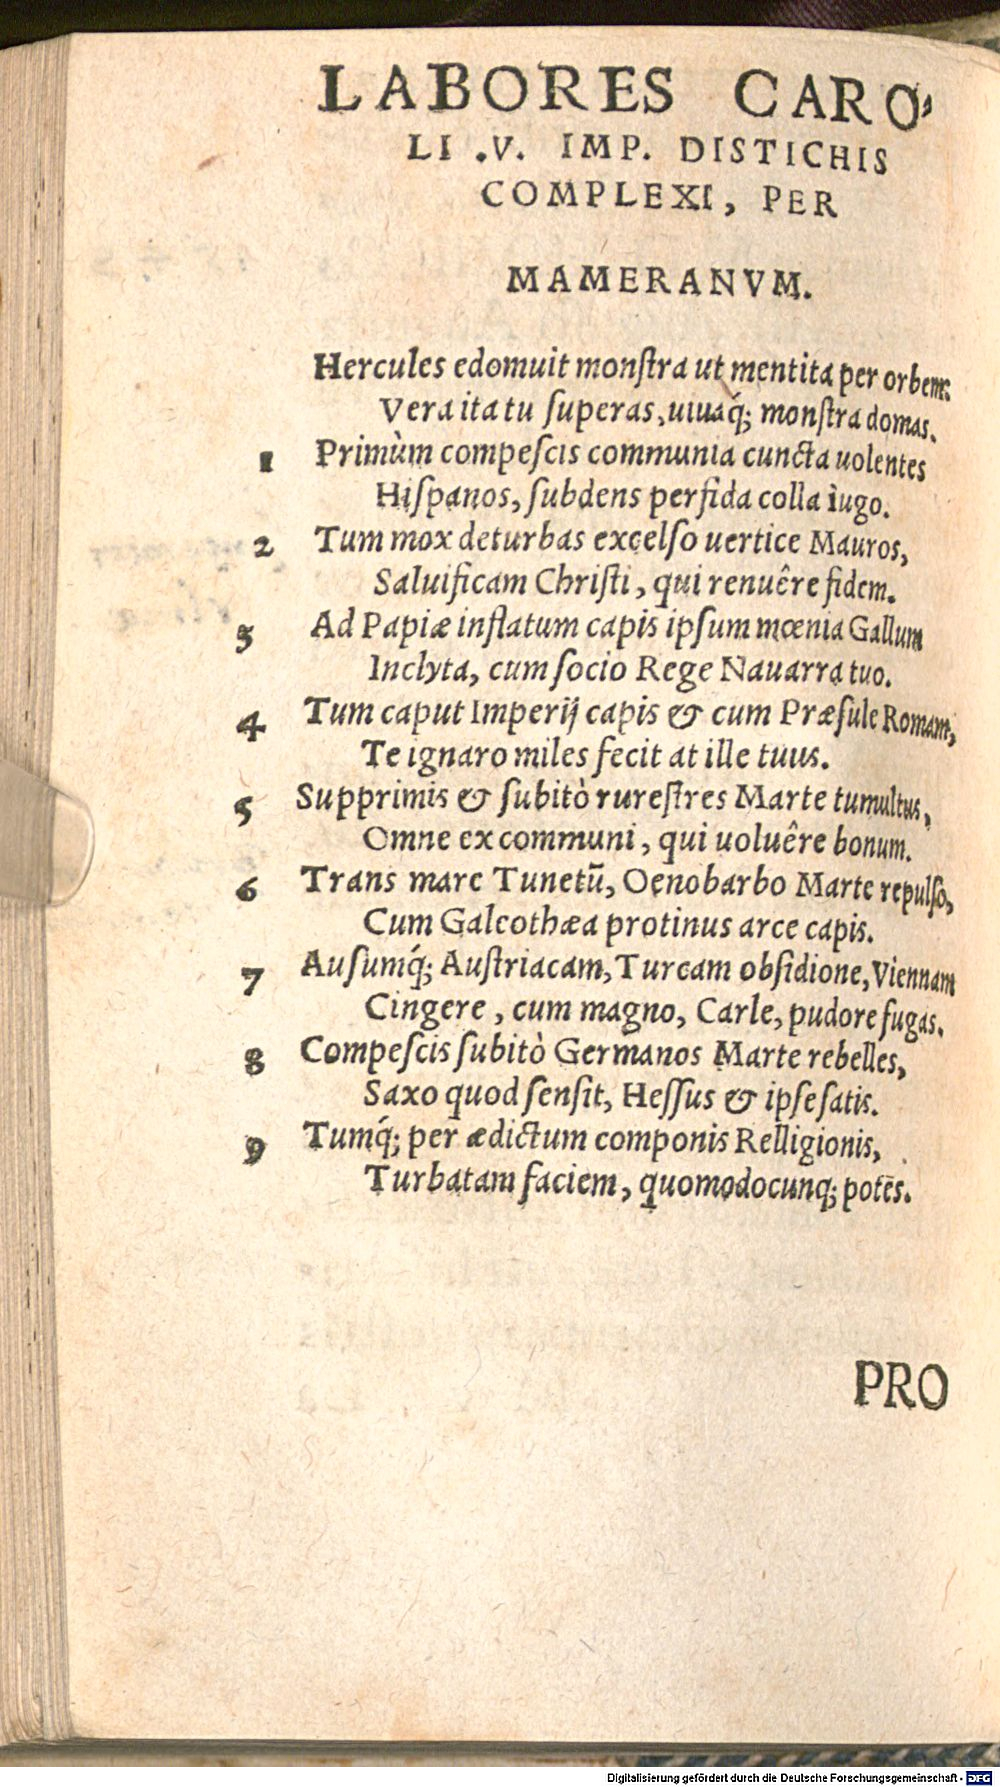 LABORES CARO⸗
LI .V. IMP. DISTICHIS
COMPLEXI, PER
MAMERANVM.
Hercules edomuit monſtra ut mentita per orbem:
Vera ita tu ſuperas, uiuaq́; monſtra domas.
1 Primùm compeſcis communia cuncta uolentes
Hiſpanos, ſubdens perfida colla iugo.
2 Tum mox deturbas excelſo uertice Mauros,
Saluificam Chriſti, qui renuêre fidem.
3 Ad Papiæ inflatum capis ipſum mœnia Gallum
Inclyta, cum ſocio Rege Nauarra tuo.
4 Tum caput Imperij capis & cum Præſule Romam,
Te ignaro miles fecit at ille tuus.
5 Supprimis & ſubitò rureſtres Marte tumultus,
Omne ex communi, qui uoluêre bonum.
6 Trans mare Tunetū, Oenobarbo Marte repulſo,
Cum Galeothæa protinus arce capis.
7 Auſumq́; Auſtriacam, Turcam obſidione, Viennam
Cingere, cum magno, Carle, pudore fugas.
8 Compeſcis ſubitò Germanos Marte rebelles,
Saxo quod ſenſit, Heſſus & ipſe ſatis.
9 Tumq́; per ædictum componis Relligionis,
Turbatam faciem, quomodocunq; potēs.
PRO
Digitalisierung gefördert durch die Deutsche Forschungsgemeinschaft - DFG